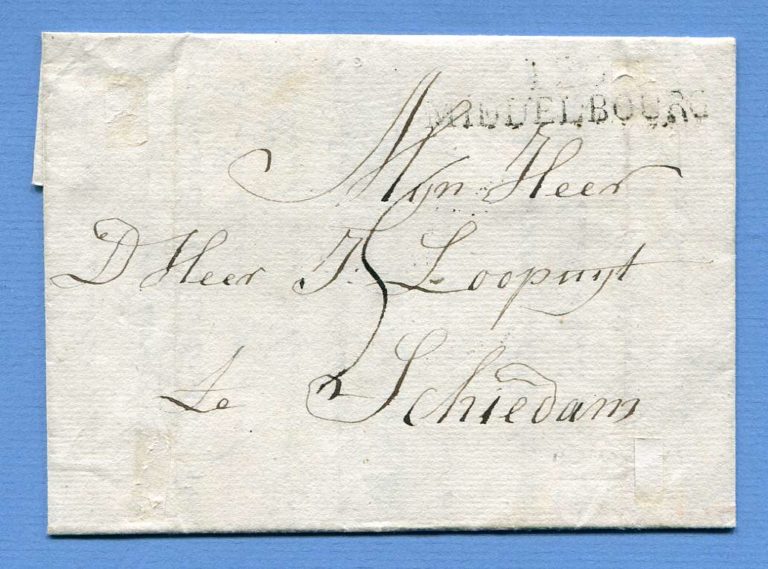 MIDDELBOURG
Mijn Heer
D Heer J. Loopuyt
5
te Schiedam